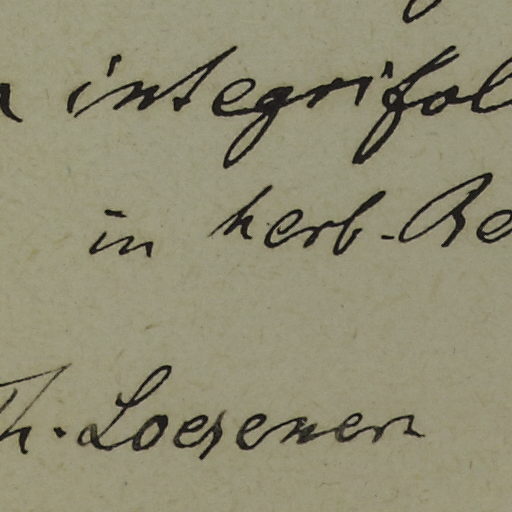 integrifol
in herb. Be
Th. Loesener